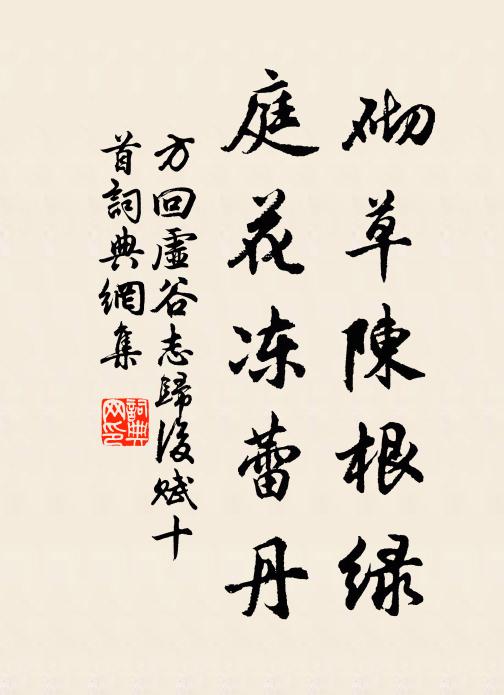 砌草陳根緑
庭花冻蕾丹
方回虛谷志歸後賦十
首詞典網集
詞典
网印